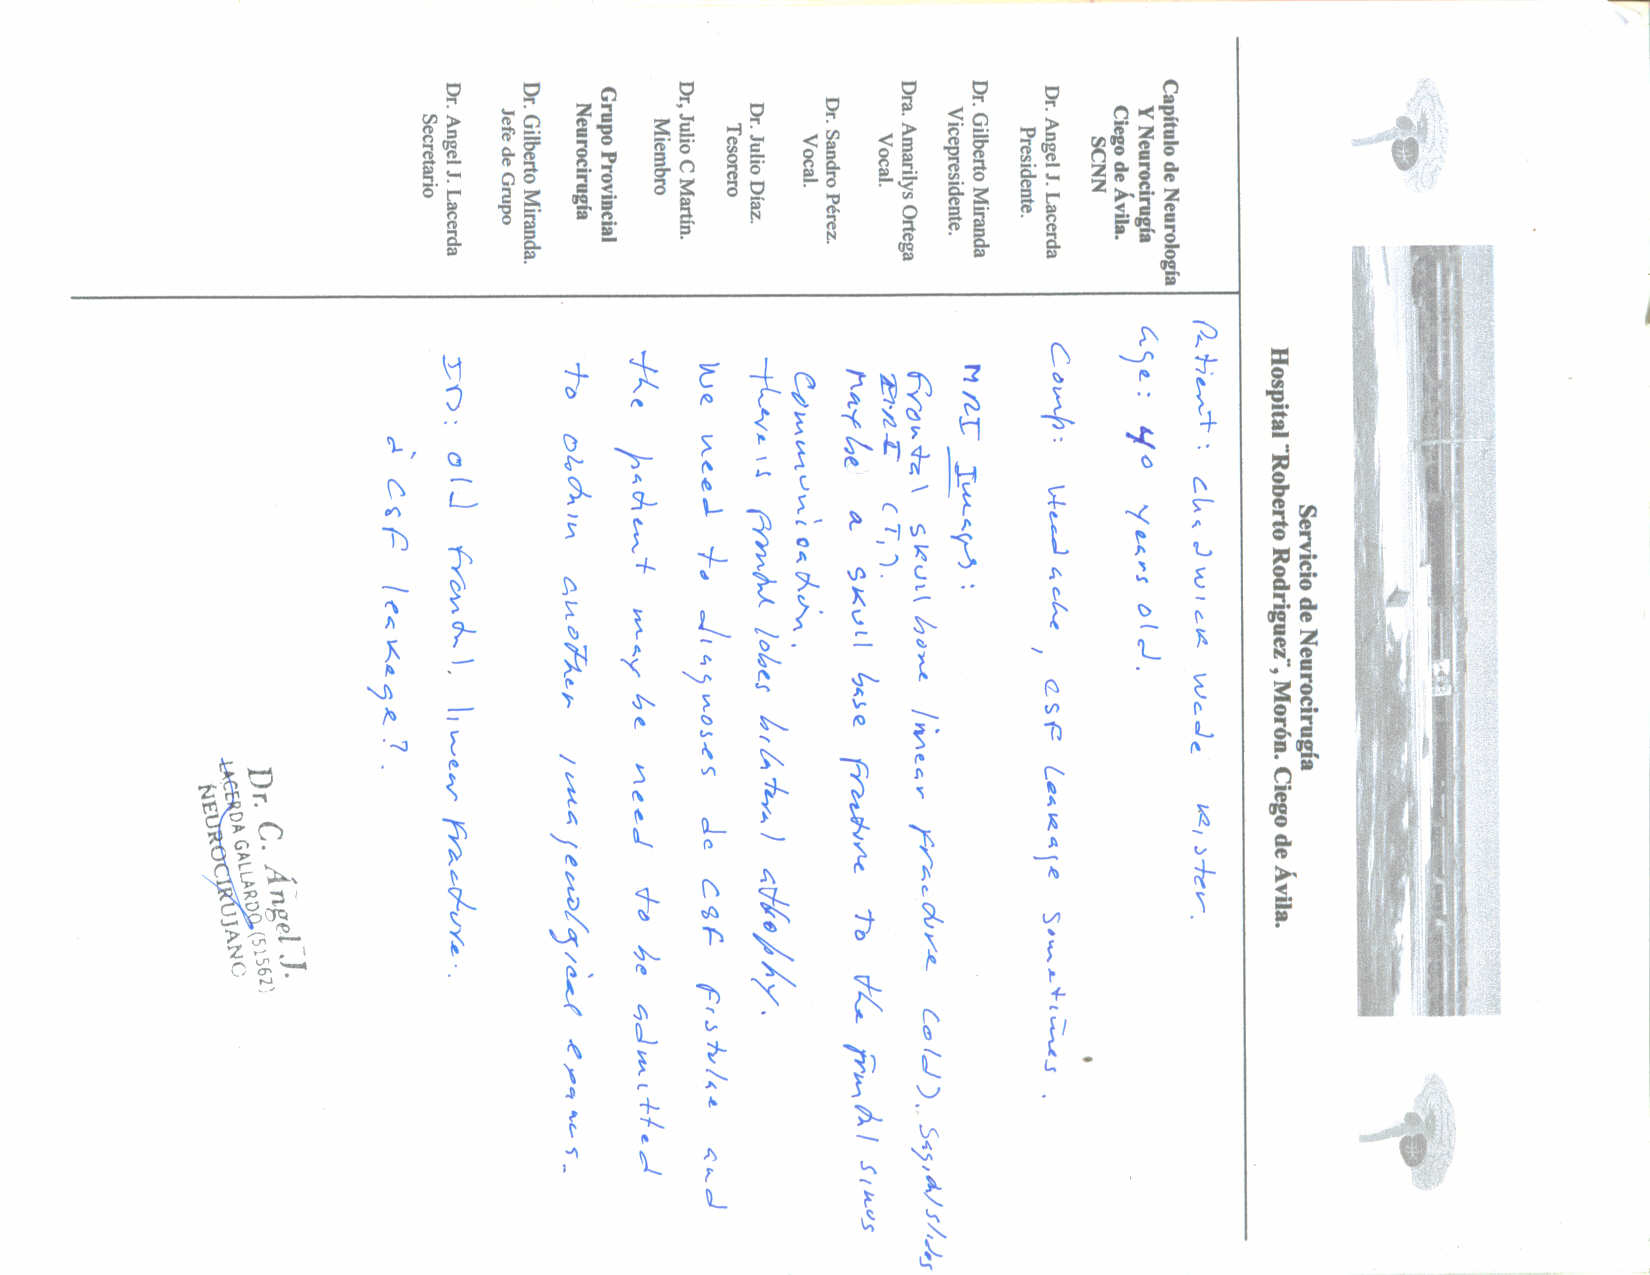 Servicio de Neurocirugía
Hospital ¨Roberto Rodriguez¨, Morón. Ciego de Ávila.
Capítulo de Neurología
Y Neurocirugía
Ciego de Ávila.
SCNN
Dr. Angel J. Lacerda
Presidente.
Dr. Gilberto Miranda
Vicepresidente.
Dra. Amarilys Ortega
Vocal.
Dr. Sandro Pérez.
Vocal.
Dr. Julio Díaz.
Tesorero
Dr, Julio C Martín.
Miembro
Grupo Provincial
Neurocirugía
Dr. Gilberto Miranda.
Jefe de Grupo
Dr. Angel J. Lacerda
Secretario
Patient: Chadwick Wade Kister.
Age: 40 years old.
Comp: Headache, CSF Leakage sometimes.
MRI Images:
Frontal skull bone linear fracture (old). Sagital slides
(T1).
Maybe a skull base fracture to the frontal sinus
communication.
There is frontal lobes bilateral atrophy.
We need to diagnoses de CSF fistulae and
the patient may be need to be admitted
to obtain another imagenological exams.
ID: old frontal linear fracture.
¿CSF leakage?.
Dr. C. Ángel J.
LACERDA GALLARDO (51562)
NEUROCIRUJANO